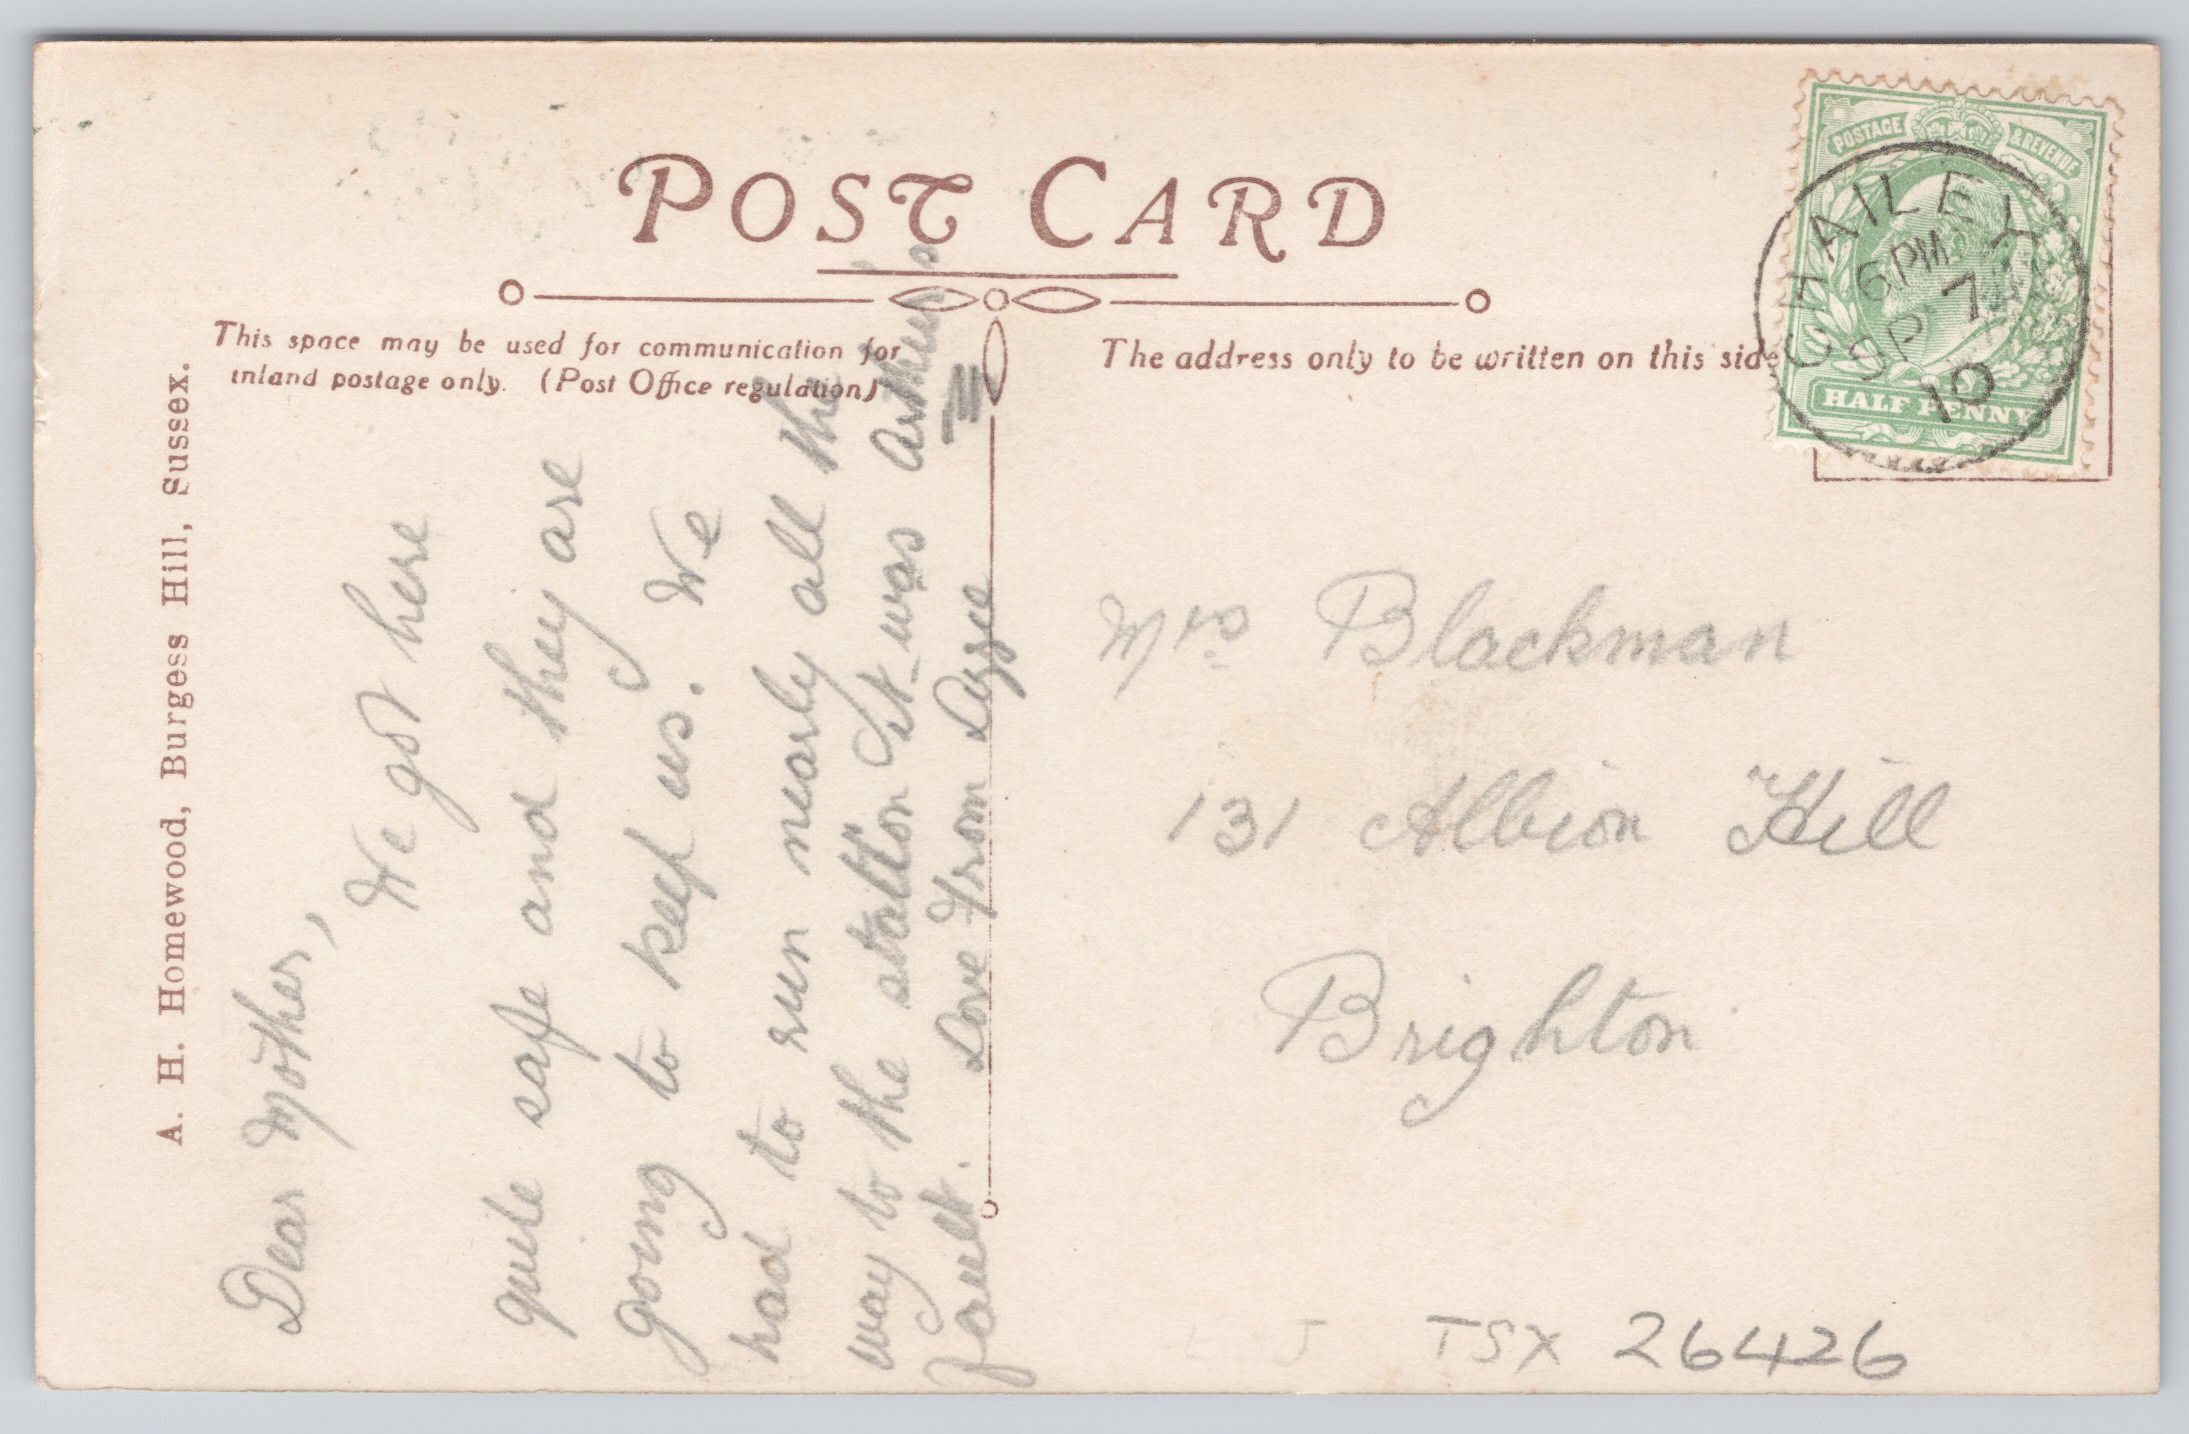 POST CARD
This space may be used for communication for
inland postage only. (Post Office regulation)
The address only to be written on this side
A. H. Homewood, Burgess Hill, Sussex.
POSTAGE & REVENUE
HALF PENNY
CHAILEY
6 PM
SP 7
10
Dear Mother,
We got here
quite safe and they are
going to keep us. We
had to run nearly all the
way to the station It was Arthur's
fault. Love From Lizzie
Mrs Blackman
131 Albion Hill
Brighton
TSX 26426